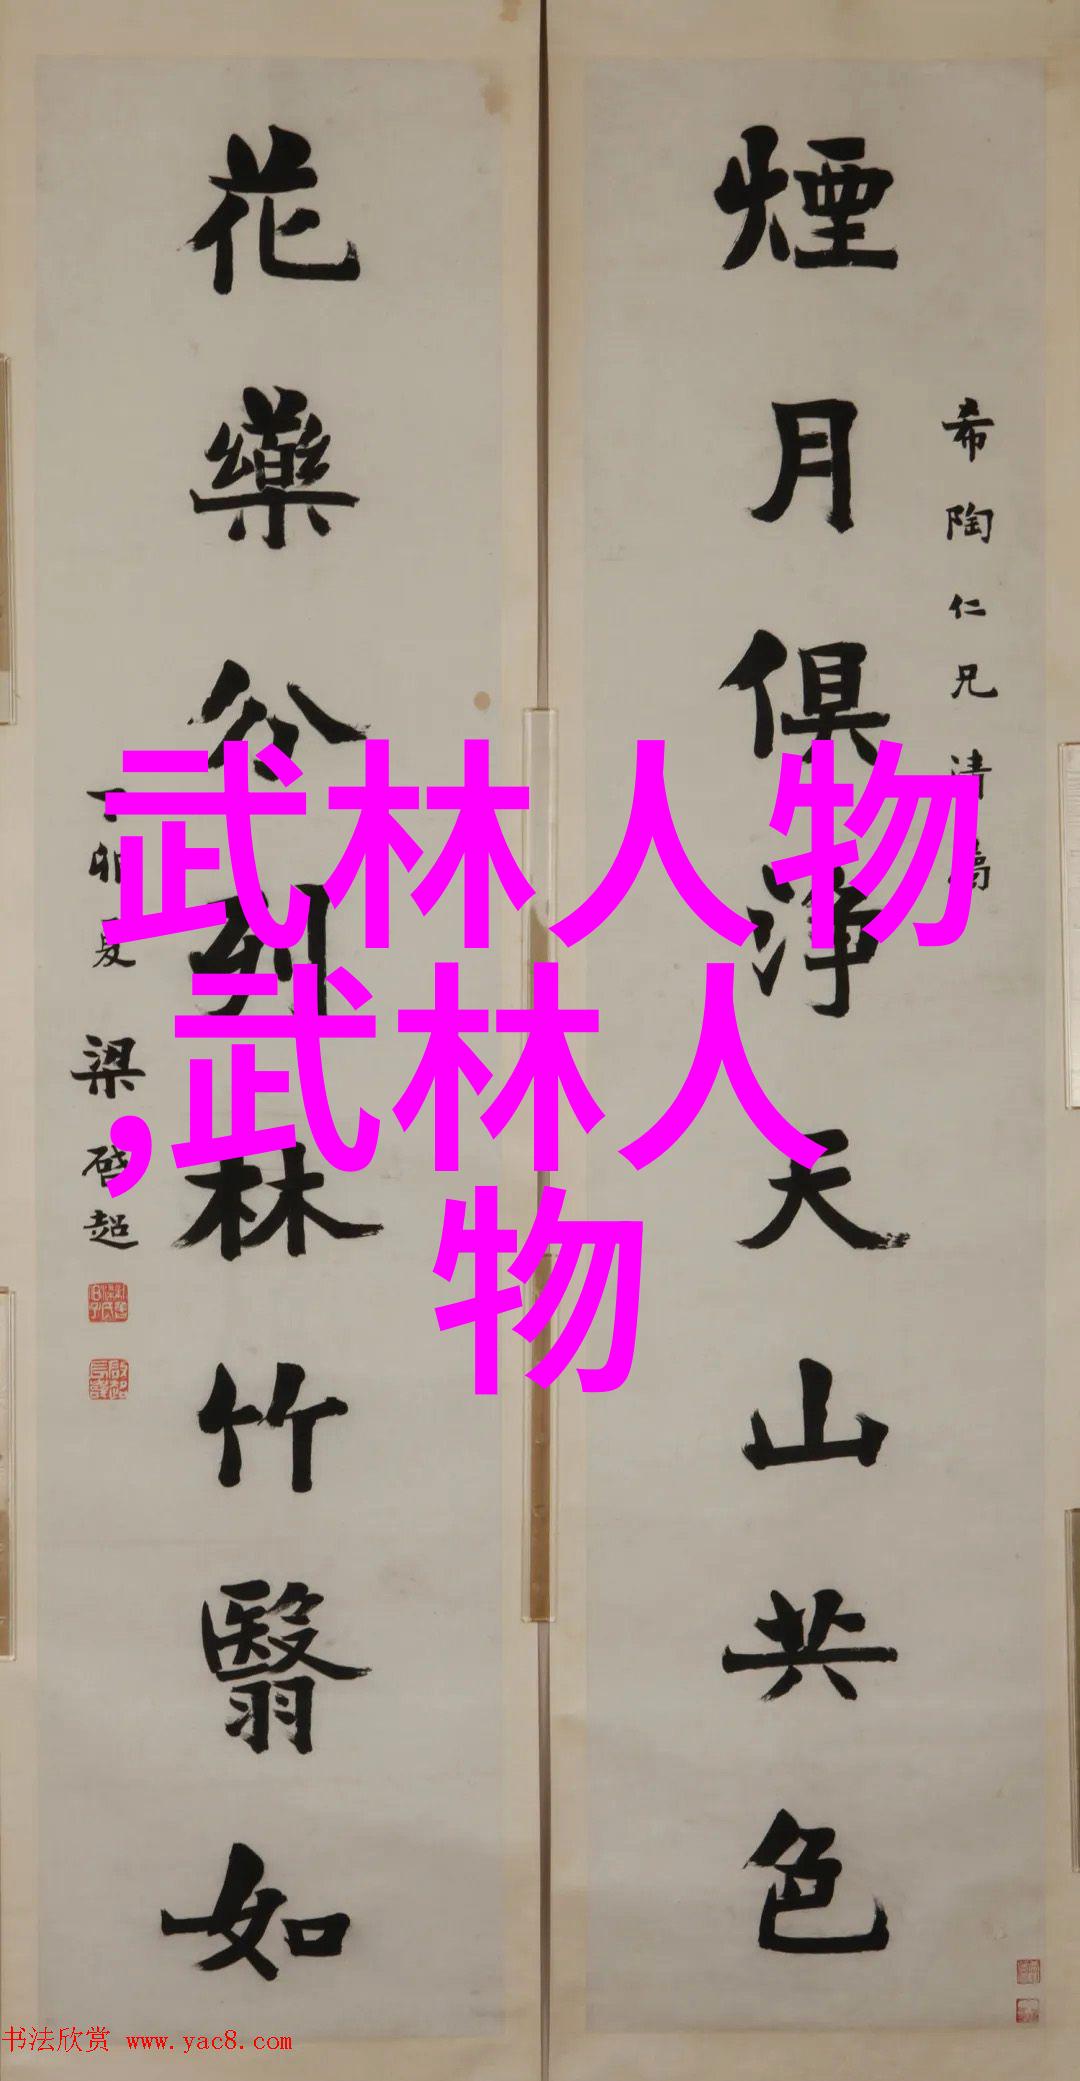 煙月俱淨天山共色
希陶仁兄清屬
花藥分列林竹翳如
丁卯夏 梁啟超
武林人物
,武林人
物
书法欣赏 www.yac8.com